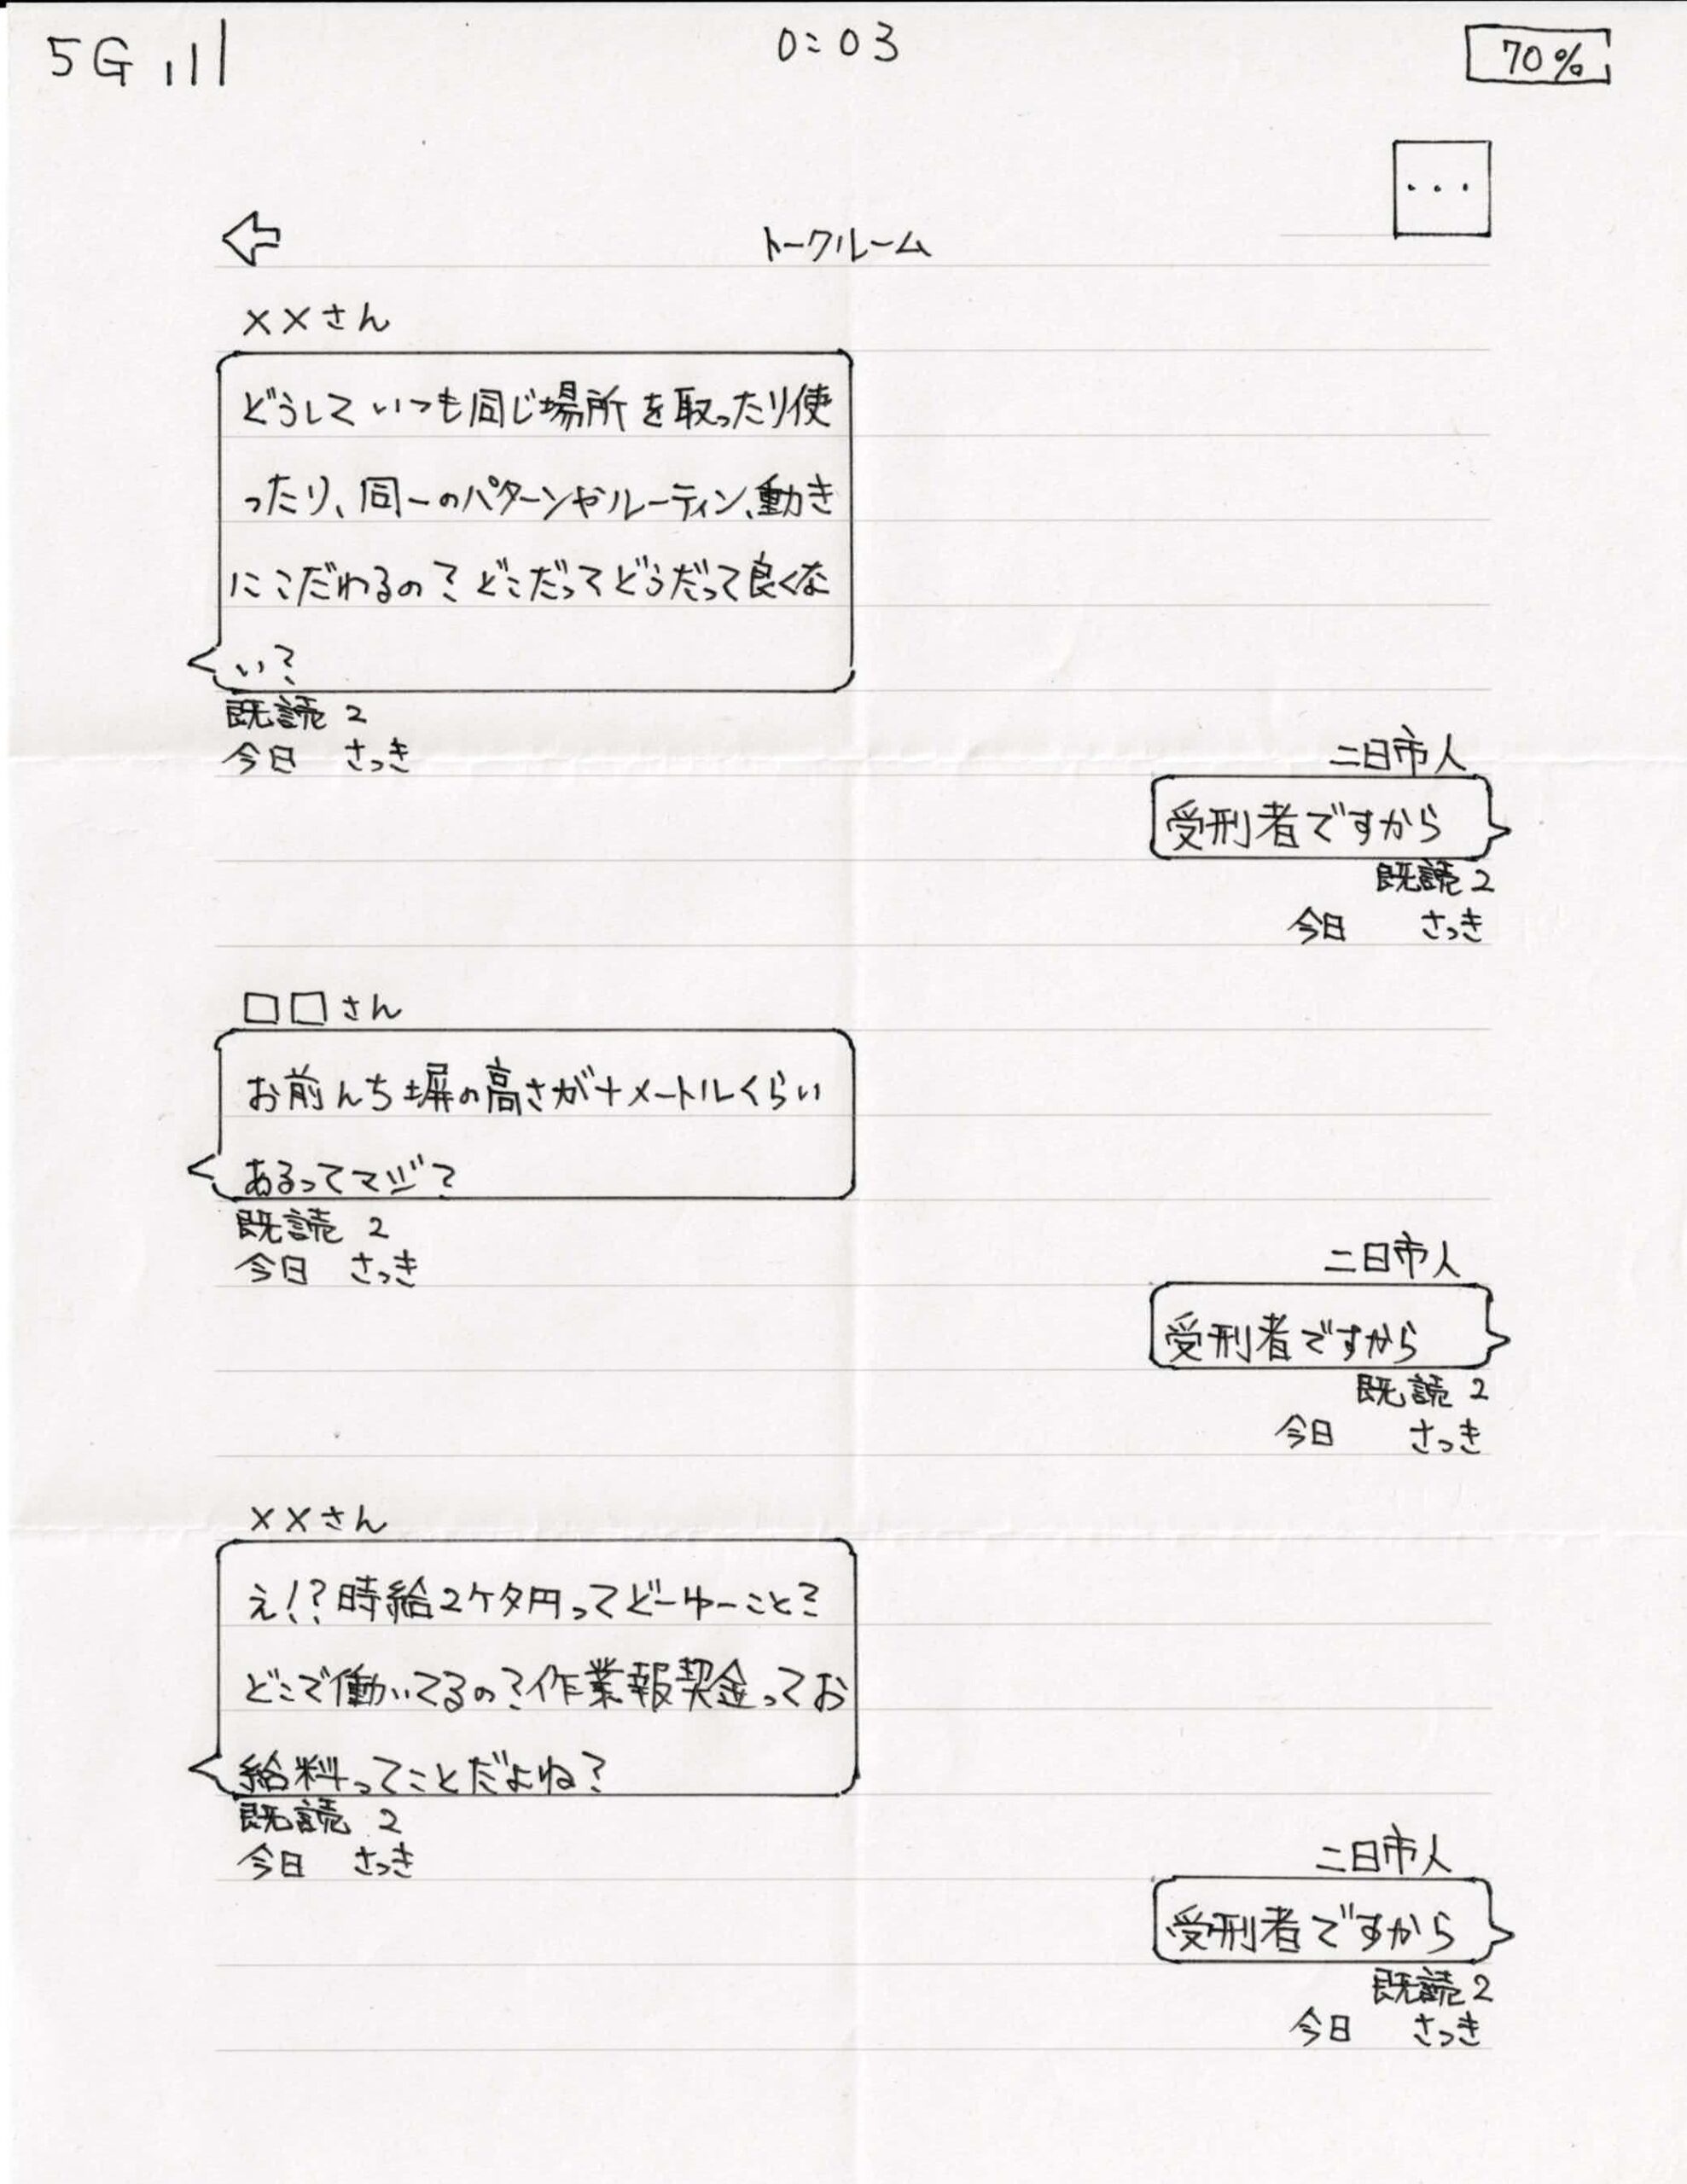 5G
0:03
70%
...
トークルーム
××さん
どうしていつも同じ場所を取ったり使
ったり、同一のパターンやルーティン、動き
にこだわるの？どこだってどうだって良くな
い？
既読 2
今日 さっき
二日市人
受刑者ですから
既読 2
今日 さっき
□□さん
お前んち塀の高さが十メートルくらい
あるってマジ？
既読 2
今日 さっき
二日市人
受刑者ですから
既読 2
今日 さっき
××さん
え!?時給2ケタ円ってどーゆーこと？
どこで働いてるの？作業報契金ってお
給料ってことだよね？
既読 2
今日 さっき
二日市人
受刑者ですから
既読 2
今日 さっき